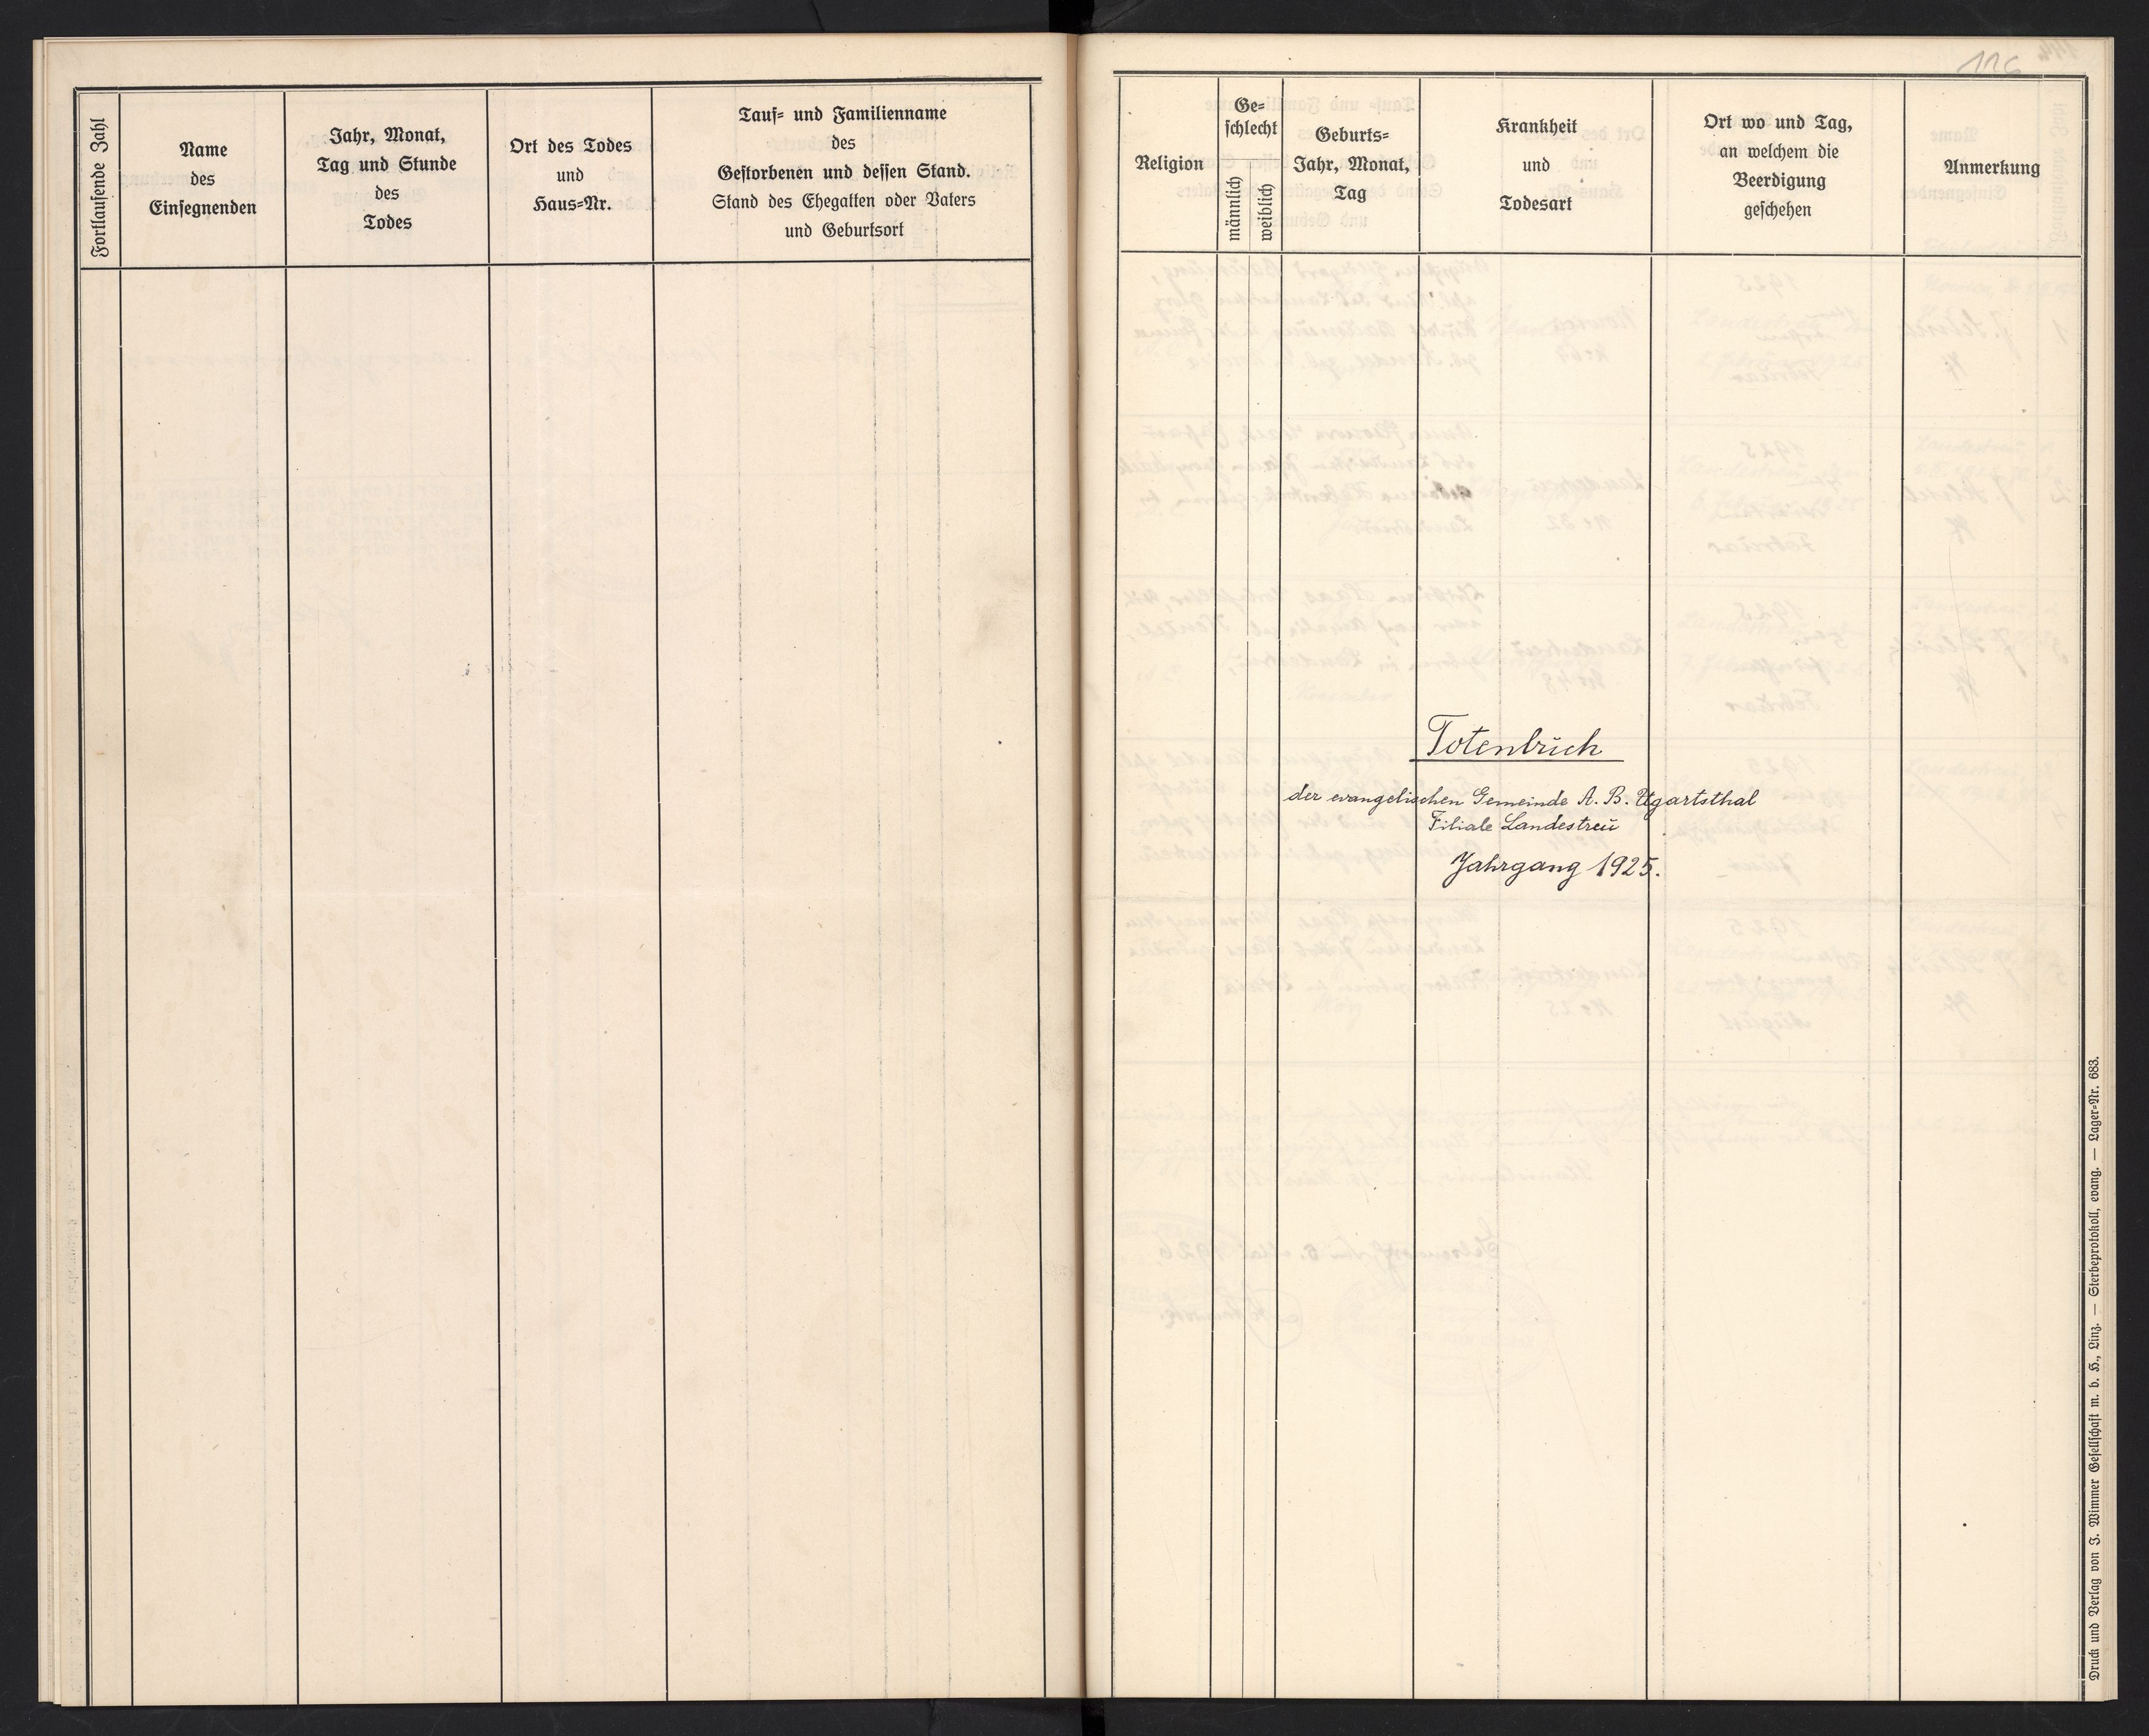 Fortlaufende Zahl
Name
des
Einsegnenden
Jahr, Monat,
Tag und Stunde
des
Todes
Ort des Todes
und
Haus=Nr.
Tauf= und Familienname
des
Gestorbenen und dessen Stand.
Stand des Ehegatten oder Vaters
und Geburtsort
116
Religion
Ge=
schlecht
männlich
weiblich
Geburts=
Jahr, Monat,
Tag
Krankheit
und
Todesart
Ort wo und Tag,
an welchem die
Beerdigung
geschehen
Anmerkung
Totenbuch
der evangelischen Gemeinde A. B. Ugartsthal
Filiale Landestreu
Jahrgang 1925.
Druck und Verlag von J. Wimmer Gesellschaft m. b. H., Linz. — Sterbeprotokoll, evang. — Lager=Nr. 683.